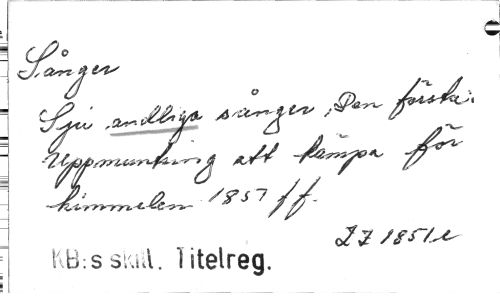 Sånger
Sju andliga sånger, Den första:
Uppmuntring att kämpa för
himmelen 1857 ff.
1851
KB:s skill. Titelreg.